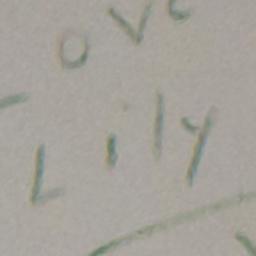 ove
Lily